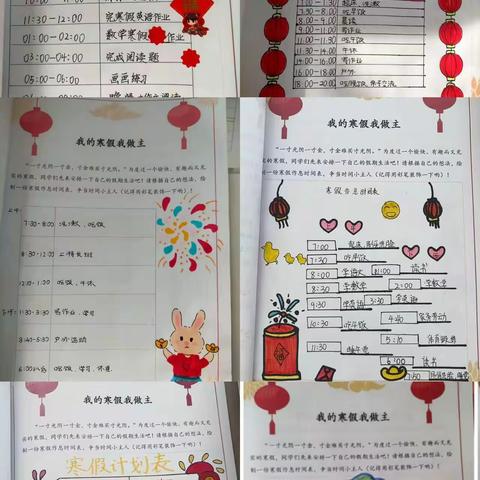 11:30-12:00 完寒假英语作业
01:00-02:00 数学寒假作业
03:00-04:00 完成阅读题
05:00-06:00 画画练习
7:30-8:00 吃早饭
8:00-9:00 晨读
9:00-11:00 写作业
11:00-11:30 吃午饭
午休
写作业
16:00-18:00 户外
18:00-20:00
我的寒假我做主
“一寸光阴一寸金，寸金难买寸光阴。”为度过一个愉快、有趣而又充
实的寒假，同学们先来安排一下自己的假期生活吧！请根据自己的想法，绘
制一份寒假作息时间表，争当时间小主人（记得用彩笔装饰一下哟）！
上午
7:30-8:00 洗漱，吃饭
8:30-12:00 上特长班
12:10-1:20 吃饭，午休
下午 1:30-3:30 写作业，学习
户外活动
吃饭，学习，休息
我的寒假我做主
“一寸光阴一寸金，寸金难买寸光阴。”为度过一个愉快、有趣而又充
实的寒假，同学们先来安排一下自己的假期生活吧！请根据自己的想法，绘
制一份寒假作息时间表，争当时间小主人（记得用彩笔装饰一下哟）！
寒假作息时间表
7:00 起床
7:30 吃早饭
8:00 学语文
8:30 学数学
9:30 学英语
10:30 吃午饭
11:30 睡午觉
读书
2:00 学数学
3:30 学英语
4:40 家务劳动
5:10 体育锻炼
6:00 读书
7:50
我的寒假我做主
“一寸光阴一寸金，寸金难买寸光阴。”为度过一个愉快、有趣而又充
实的寒假，同学们先来安排一下自己的假期生活吧！请根据自己的想法，绘
制一份寒假作息时间表，争当时间小主人（记得用彩笔装饰一下哟）！
寒假计划表
我的寒假我做主
“一寸光阴一寸金，寸金难买寸光阴。”为度过一个愉快、有趣而又充
实的寒假，同学们先来安排一下自己的假期生活吧！请根据自己的想法，绘
制一份寒假作息时间表，争当时间小主人（记得用彩笔装饰一下哟）！